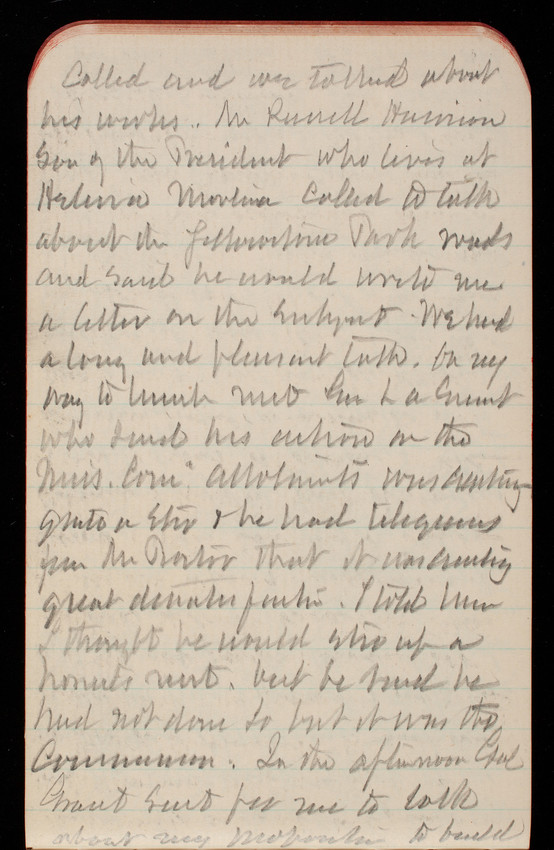 Called and we talked about
his works. Mr Russell Harrison
Son of the President who lives at
Helena Montana called to talk
about the Yellowstone Park roads
and said he would write me
a letter on the subject. We had
a long and pleasant talk. On my
way to lunch met Gen L A Grant
who said his action on the
Miss. Com. allotments was creating
quite a stir & he had telegrams
from Mr that it was creating
great dissatisfaction. I told him
I thought he would stir up a
hornets nest. but he said he
had not done so but it was the
Commission. In the afternoon Genl
Grant sent for me to talk
about my proposition to build